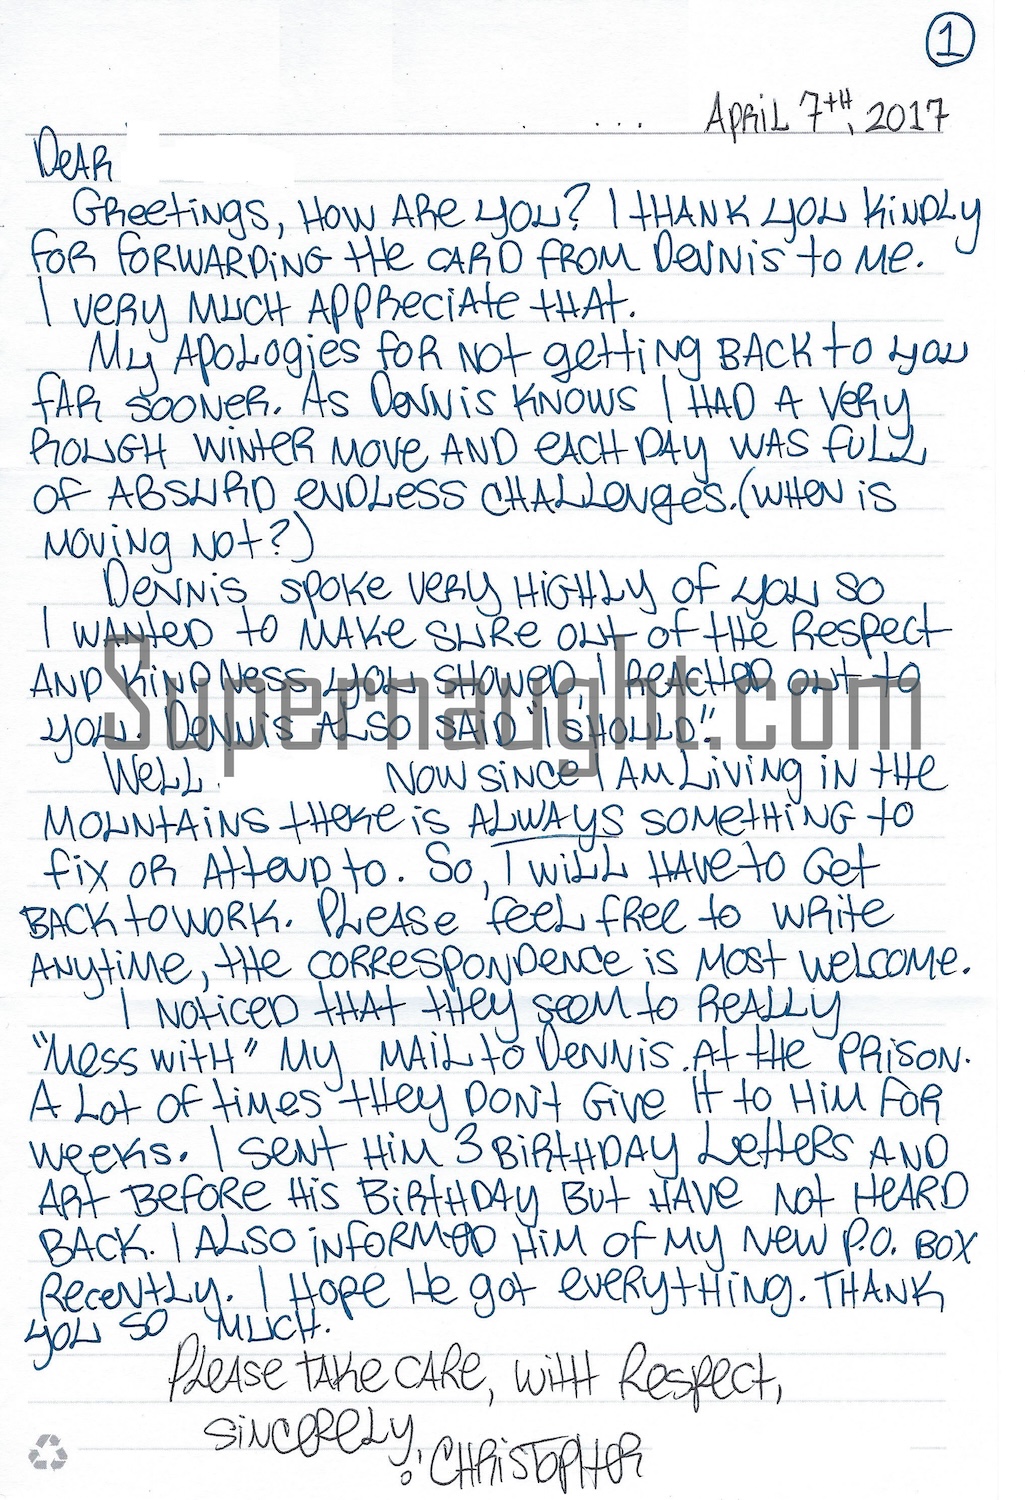 1
April 7th, 2017
Dear
Greetings, How are you? I thank you kindly
for forwarding the card from Dennis to me.
I very much appreciate that.
My apologies for not getting back to you
far sooner. As Dennis knows I had a very
rough winter move and each day was full
of absurd endless challenges. (When is
moving not?)
Dennis spoke very highly of you so
I wanted to make sure out of the respect
and kindness you showed, I reached out to
you. Dennis also said "I should".
Supernaught.com
Well. Now since I am living in the
mountains there is always something to
fix or attend to. So, I will have to get
back to work. Please feel free to write
anytime, the correspondence is most welcome.
I noticed that they seem to really
"mess with" my mail to Dennis at the prison.
A lot of times they don't give it to him for
weeks. I sent him 3 birthday letters and
art before his birthday but have not heard
back. I also informed him of my new P.O. Box
recently. I hope he got everything. Thank
you so much.
Please take care, with respect,
sincerely,
Christopher